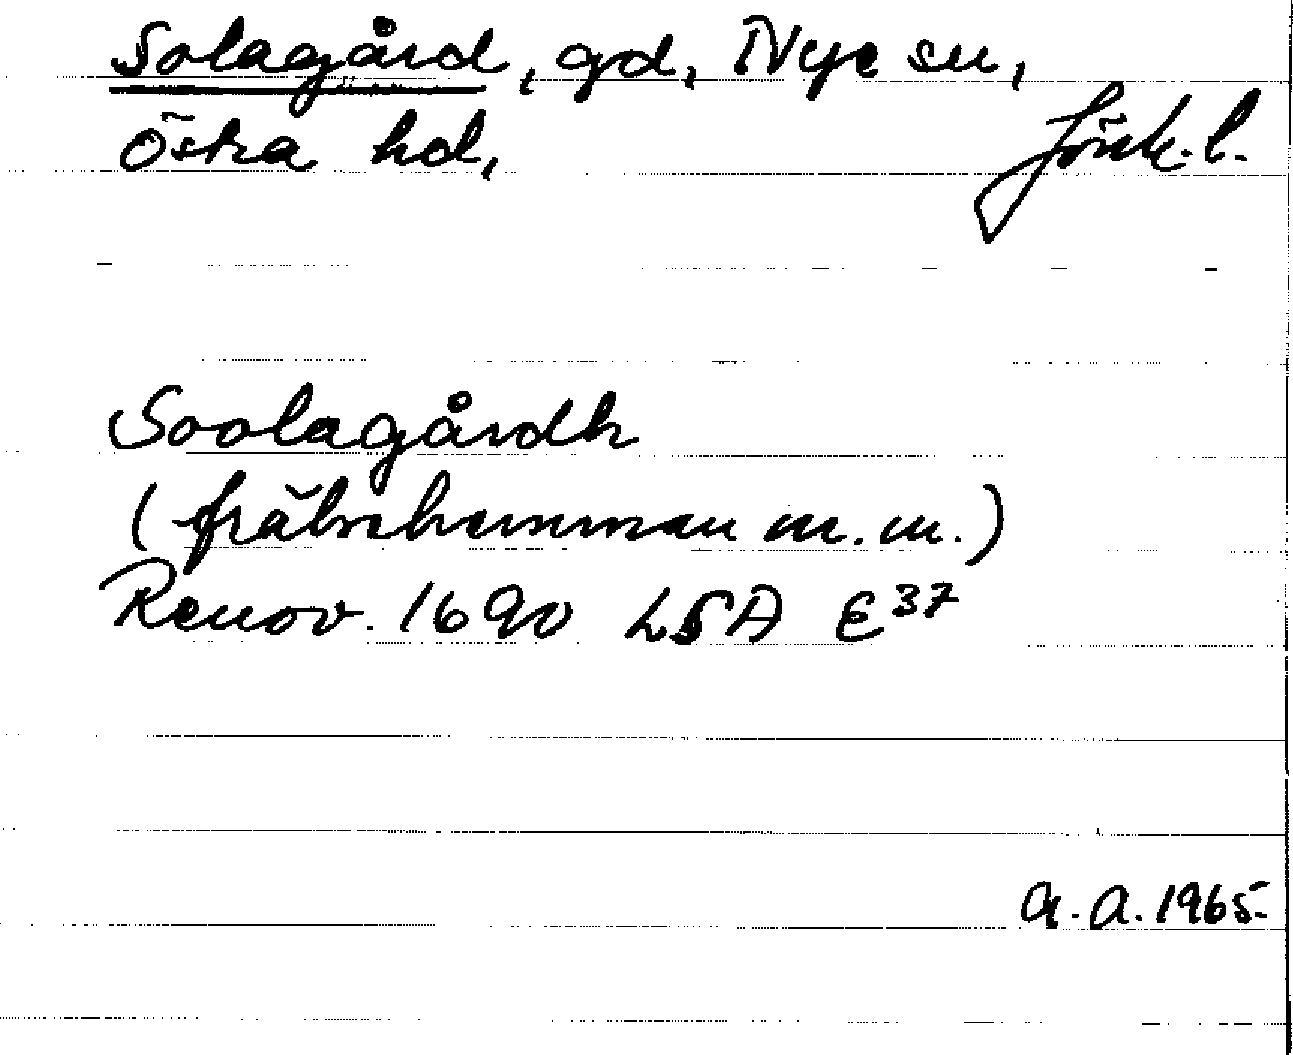 Solagård, gd, Nye sn,
Östra hd, Jönk. l.
Soolagårdh
(frälsehemman m. m.)
Renov. 1690 LSA E³⁷
A. A. 1965.